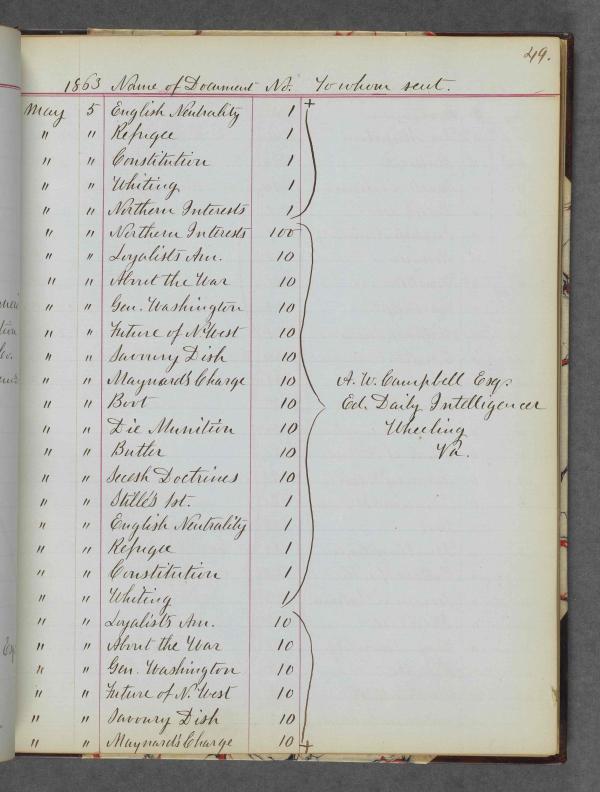 49.
1863 Name of Document No. To whom sent.
May 5 English Neutrality 1
" " Refugee 1
" " Constitution 1
" " Whiting 1
" " Northern Interests 1
" " Northern Interests 100
" " Loyalists Am. 10
" " About the War 10
" " Gen. Washington 10
" " Future of N. West 10
" " Savoury Dish 10
" " Maynard's Charge 10 A. W. Campbell Esq.
" " Boot 10 Ed. Daily Intelligencer
" " Die Munition 10 Wheeling
" " Butler 10 Va.
" " Secesh Doctrines 10
" " Stillé's 1st. 1
" " English Neutrality 1
" " Refugee 1
" " Constitution 1
" " Whiting 1
" " Loyalists Am. 10
" " About the War 10
" " Gen. Washington 10
" " Future of N. West 10
" " Savoury Dish 10
" " Maynard's Charge 10